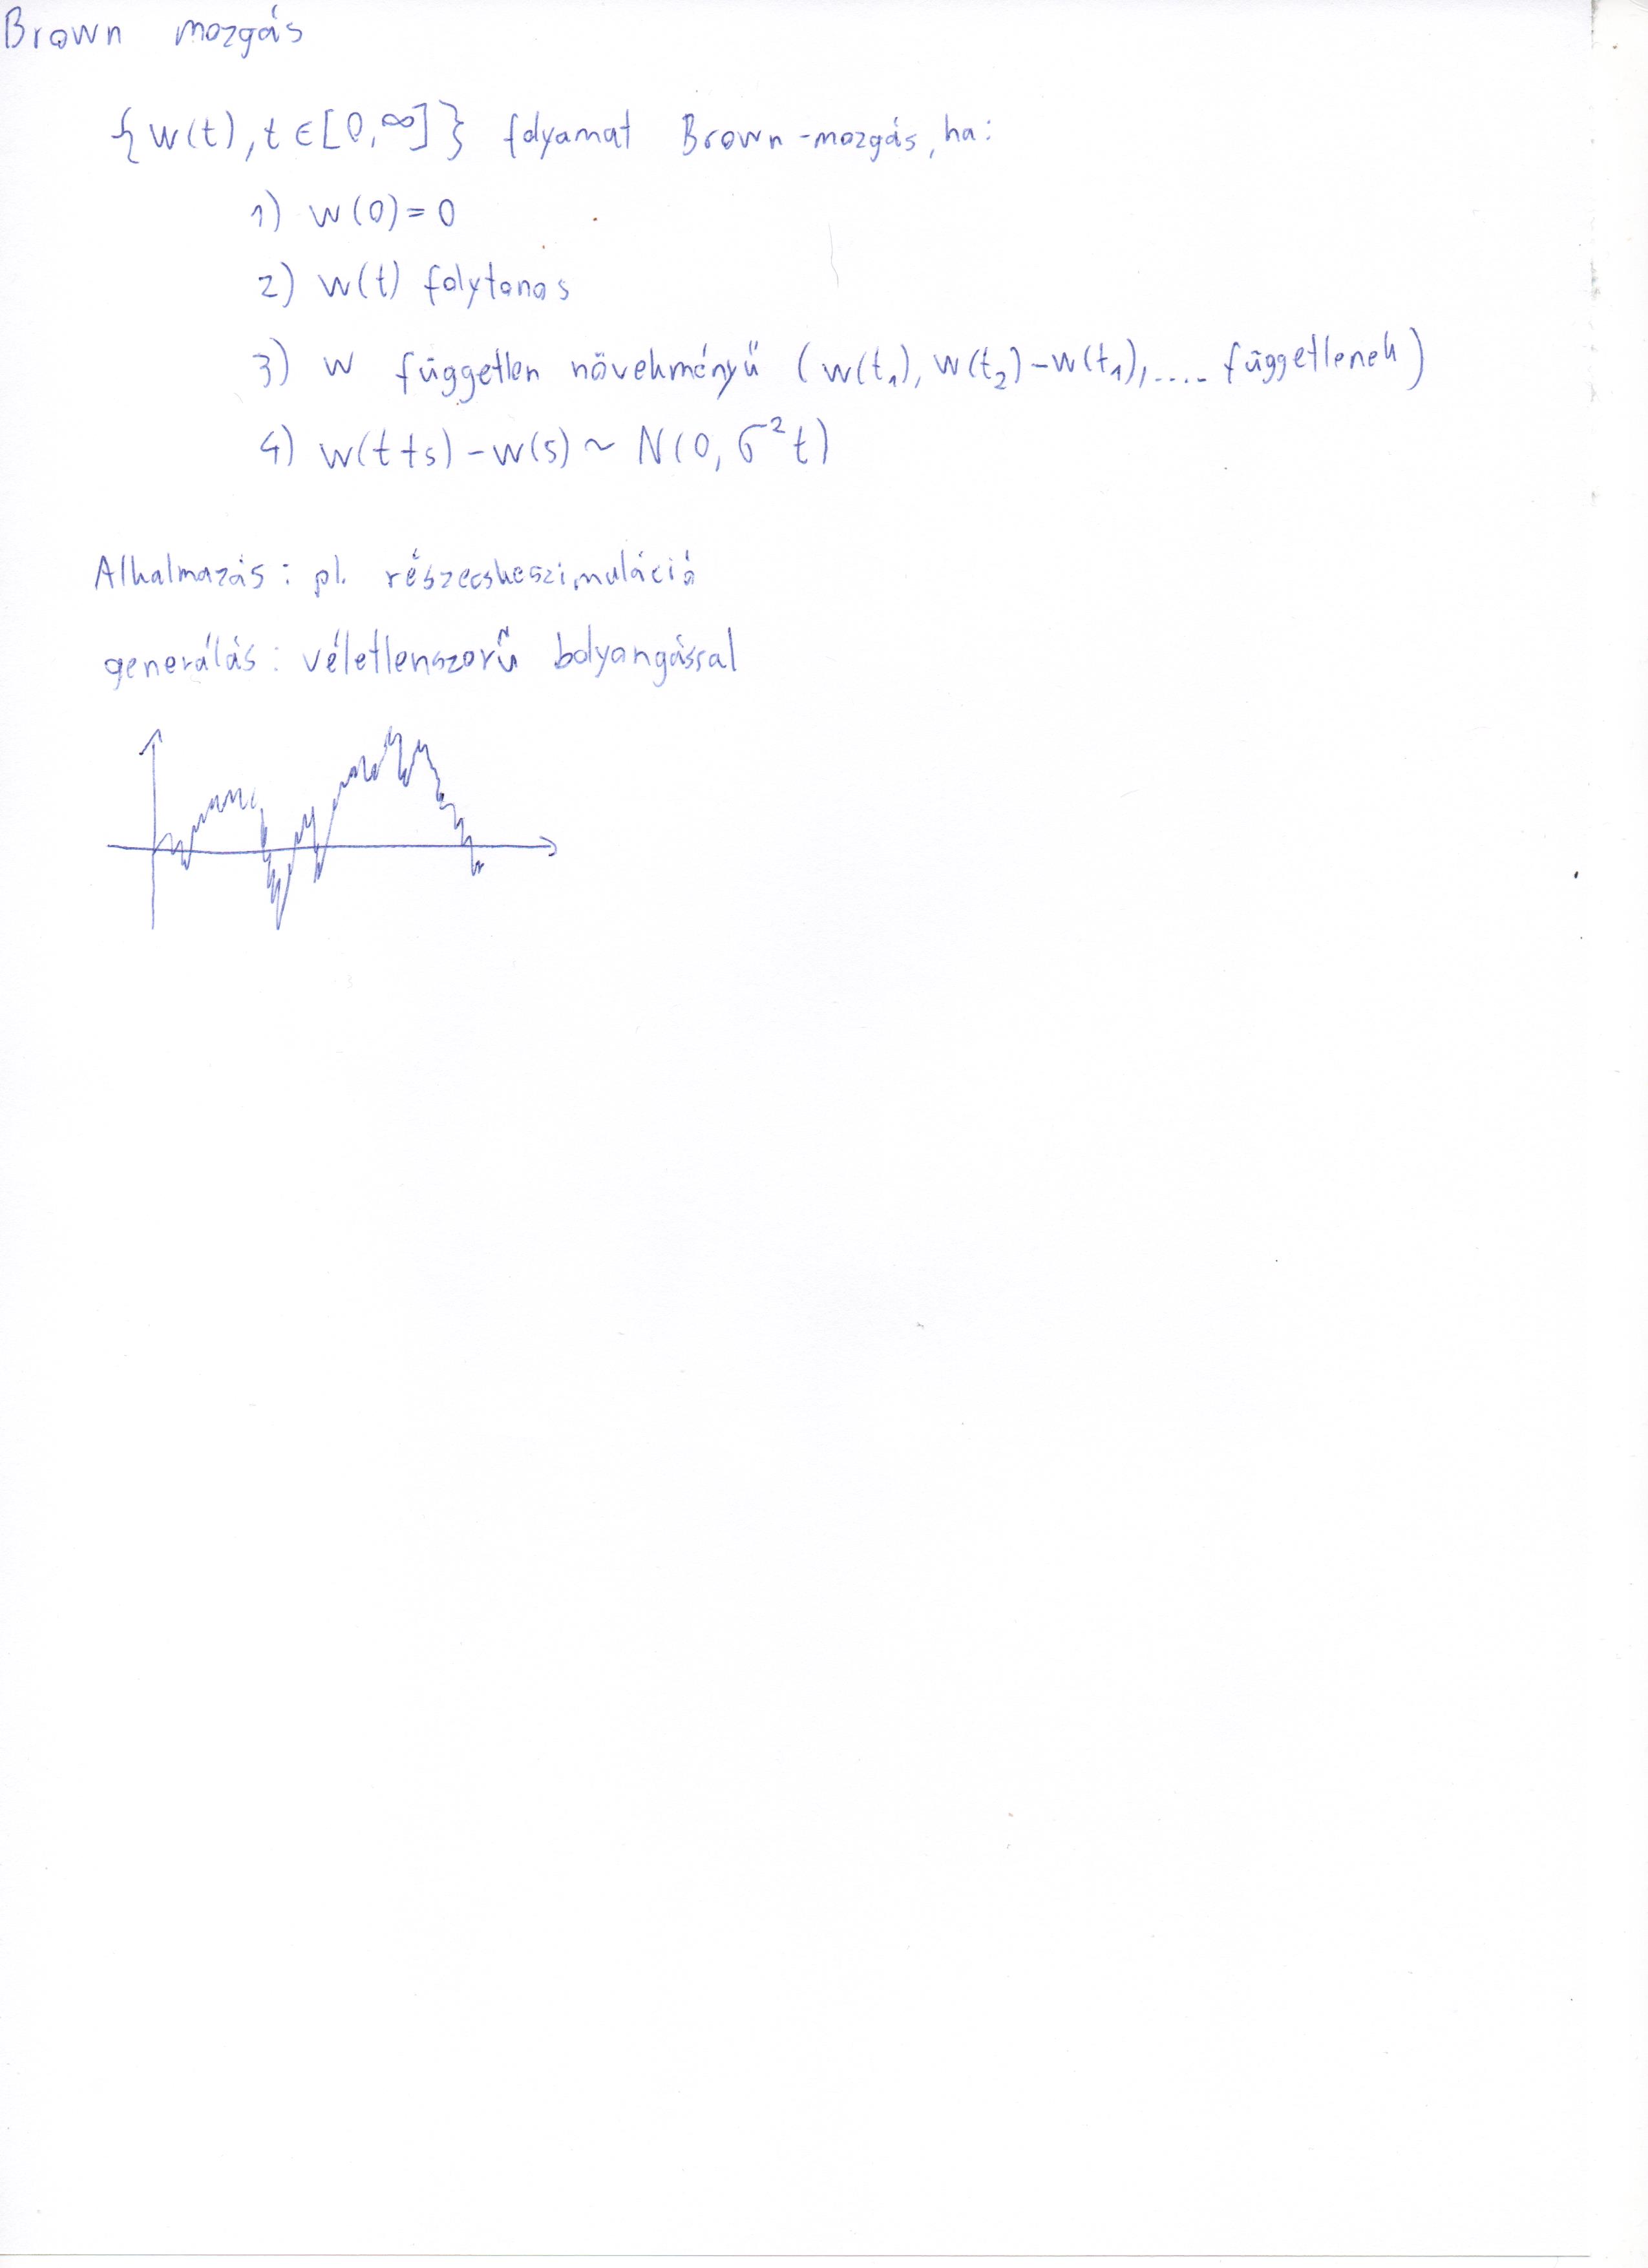 Brown mozgás
{w(t), t ∈ [0, ∞]} folyamat Brown-mozgás, ha:
1) w(0) = 0
2) w(t) folytonos
3) w független növekményű (w(t₁), w(t₂) - w(t₁), .... függetlenek)
4) w(t+s) - w(s) ~ N(0, σ²t)
Alkalmazás: pl. részecskeszimuláció
generálás: véletlenszerű bolyongással